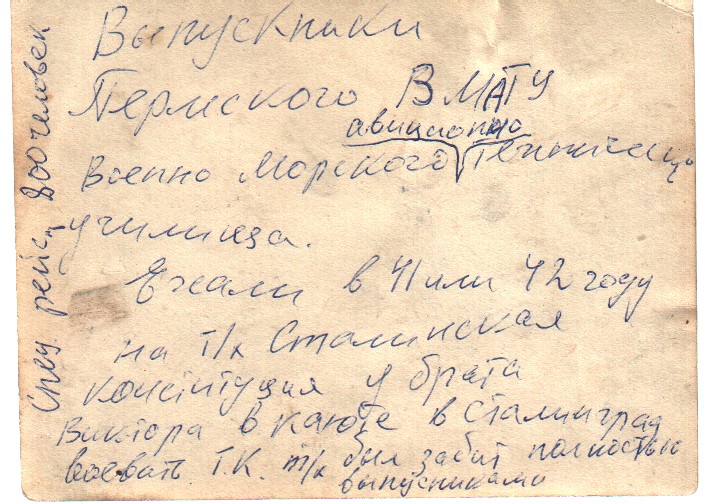 Выпускники
Пермского ВМАТУ
авиационно
Военно Морского технического
училища.
Ехали в 41 или 42 году
на т/х Сталинская
конституция у брата
Виктора в каюте в Сталинград
воевать. Т.К. т/х был забит полностью
выпускниками
Спец. рейс, 800 человек